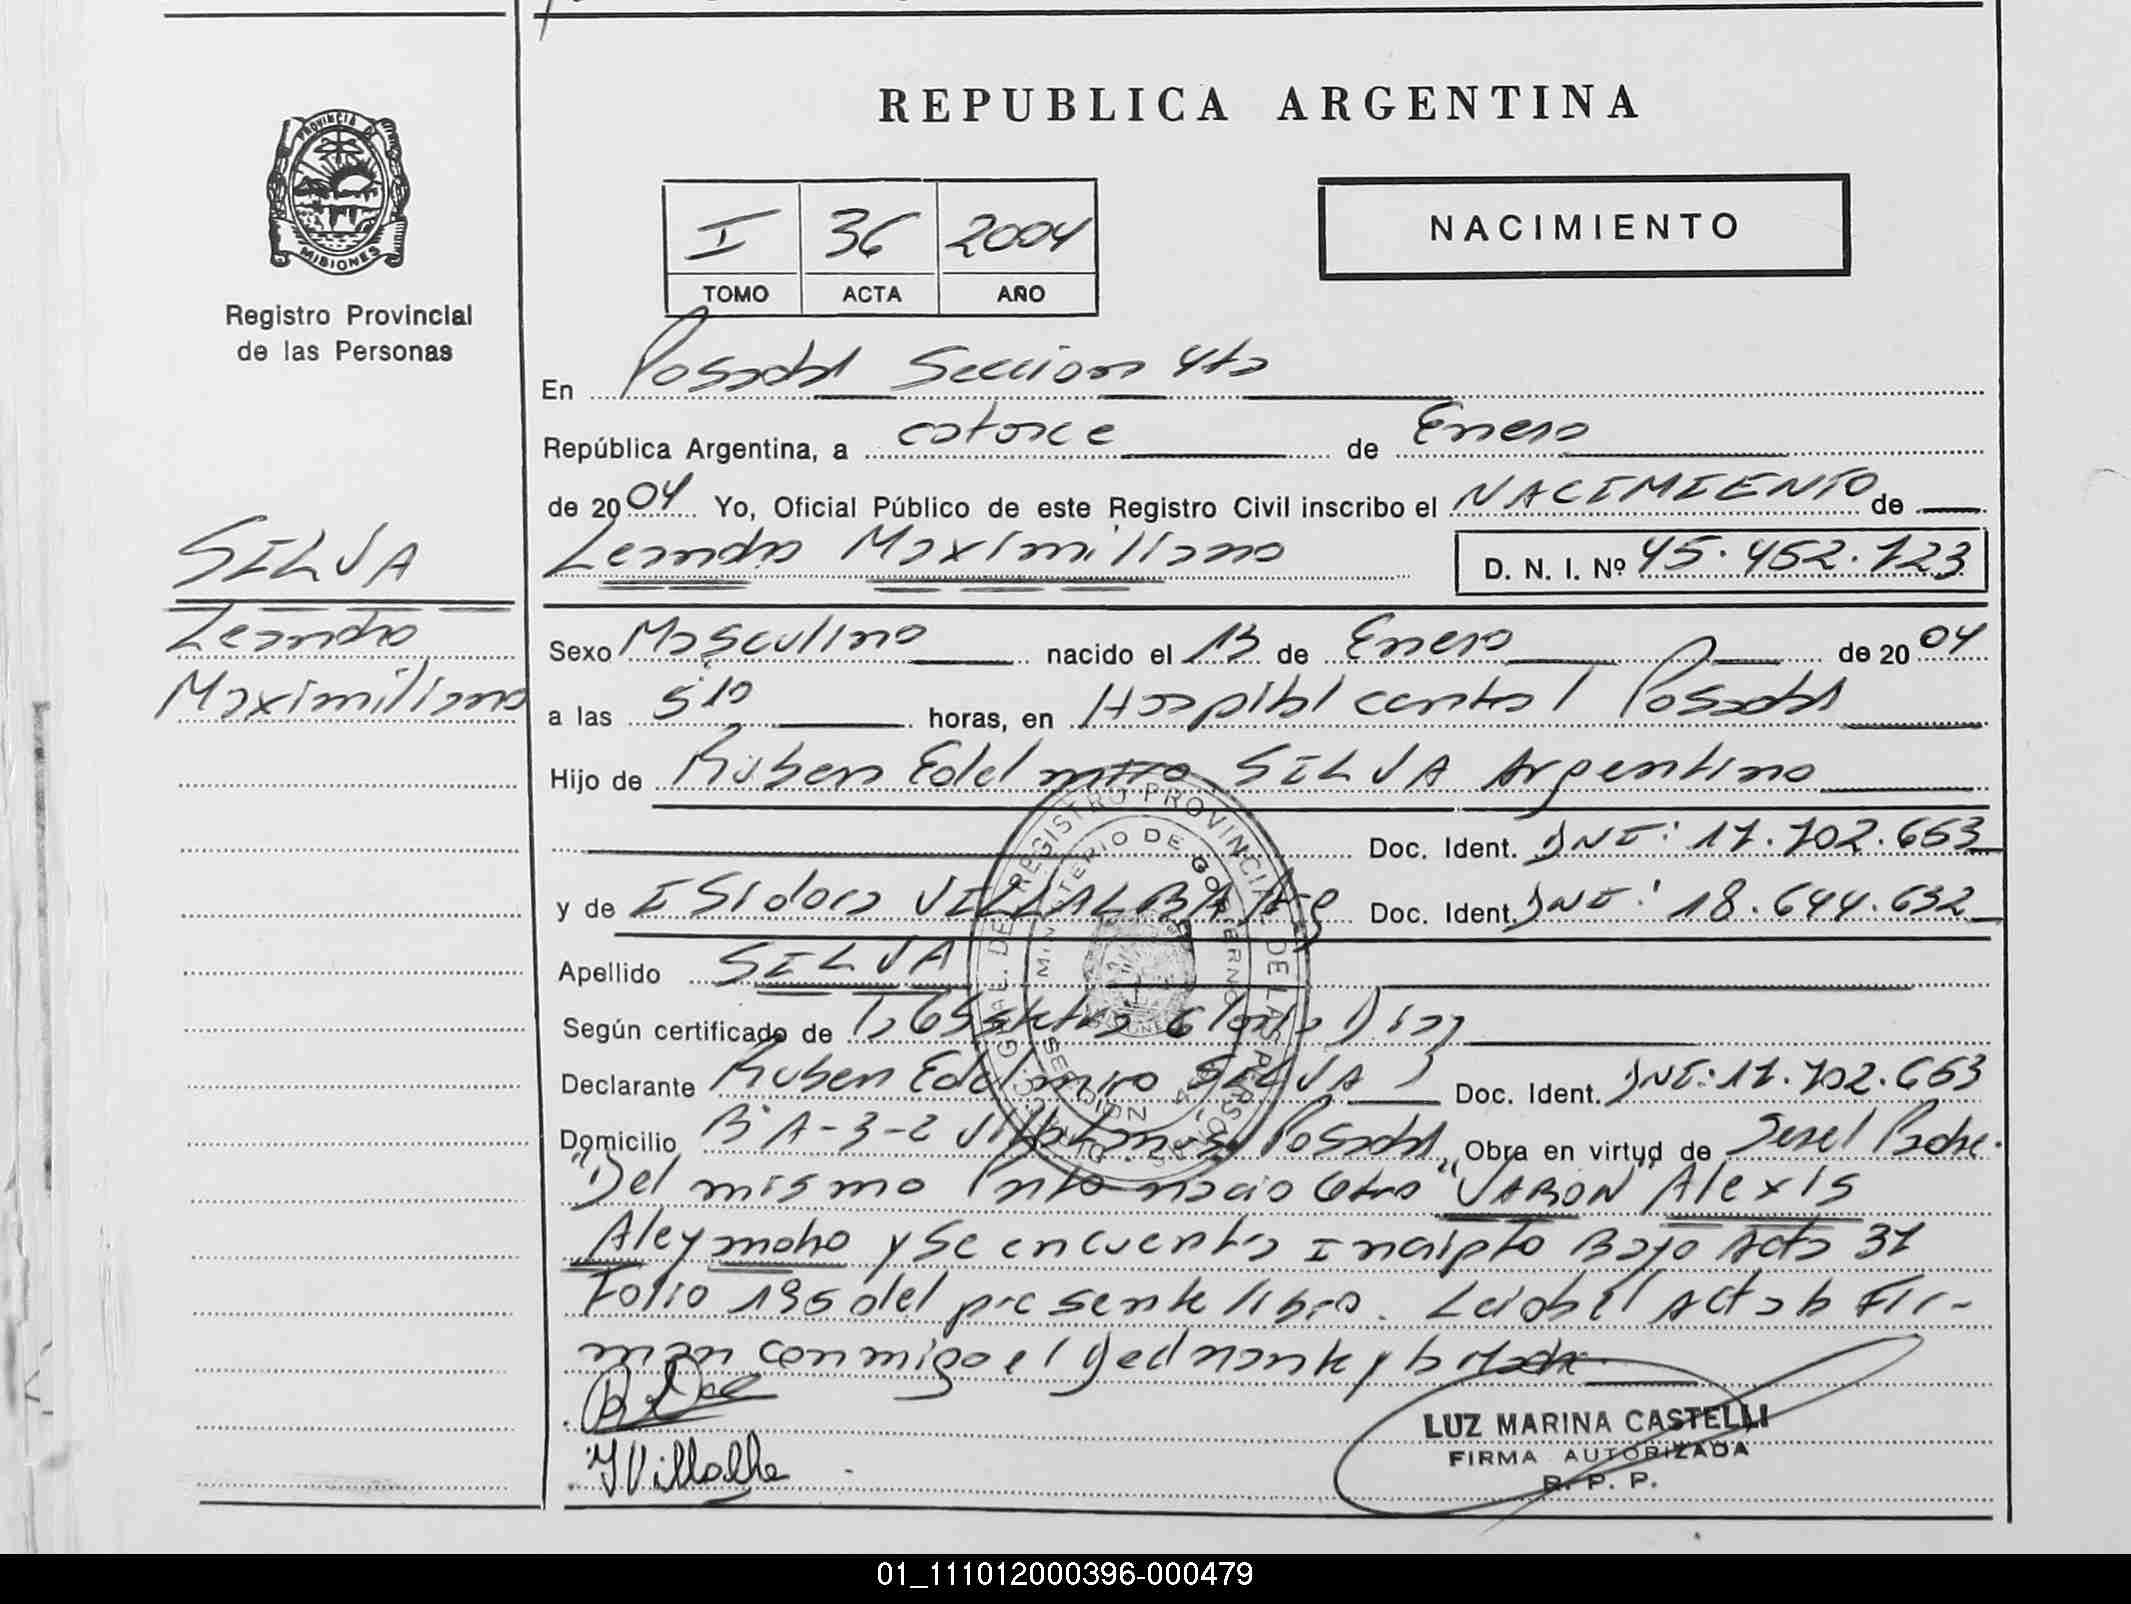 REPUBLICA ARGENTINA
PROVINCIA D
MISIONES
Registro Provincial
de las Personas
I 36 2004
TOMO ACTA AÑO
NACIMIENTO
En Posadas Seccion 4ta
República Argentina, a catorce de Enero
de 2004 Yo, Oficial Público de este Registro Civil inscribo el NACIMIENTO de
Leandro Maximiliano D. N. I. Nº 45.452.123
SILVA
Leandro
Maximiliano
Sexo Masculino nacido el 13 de Enero de 2004
a las 5:10 horas, en Hospital central Posadas
Hijo de Ruben Edelmiro SILVA Argentino
Doc. Ident. DNI: 17.702.663
y de ISidora VILLALBA Arg Doc. Ident. DNI: 18.644.632
Apellido SILVA
Según certificado de la Obstetra Gloria Diaz
Declarante Ruben Edelmiro SILVA Doc. Ident. DNI: 17.702.663
Domicilio Bº A-3-2 Posadas Obra en virtud de Ser el Padre.
"Del mismo Parto nacio Otro "VARON" Alexis
Aleymoho y Se encuentra Inscripto Bajo Acta 37
Folio 195 del presente libro. Leida el Acta la Fir-
man conmigo el y la Madre.
IVillalba
LUZ MARINA CASTELLI
FIRMA AUTORIZADA
R. P. P.
REGISTRO PROVINCIAL DE LAS PERSONAS
MINISTERIO DE GOBIERNO
SECCION 4
01_111012000396-000479